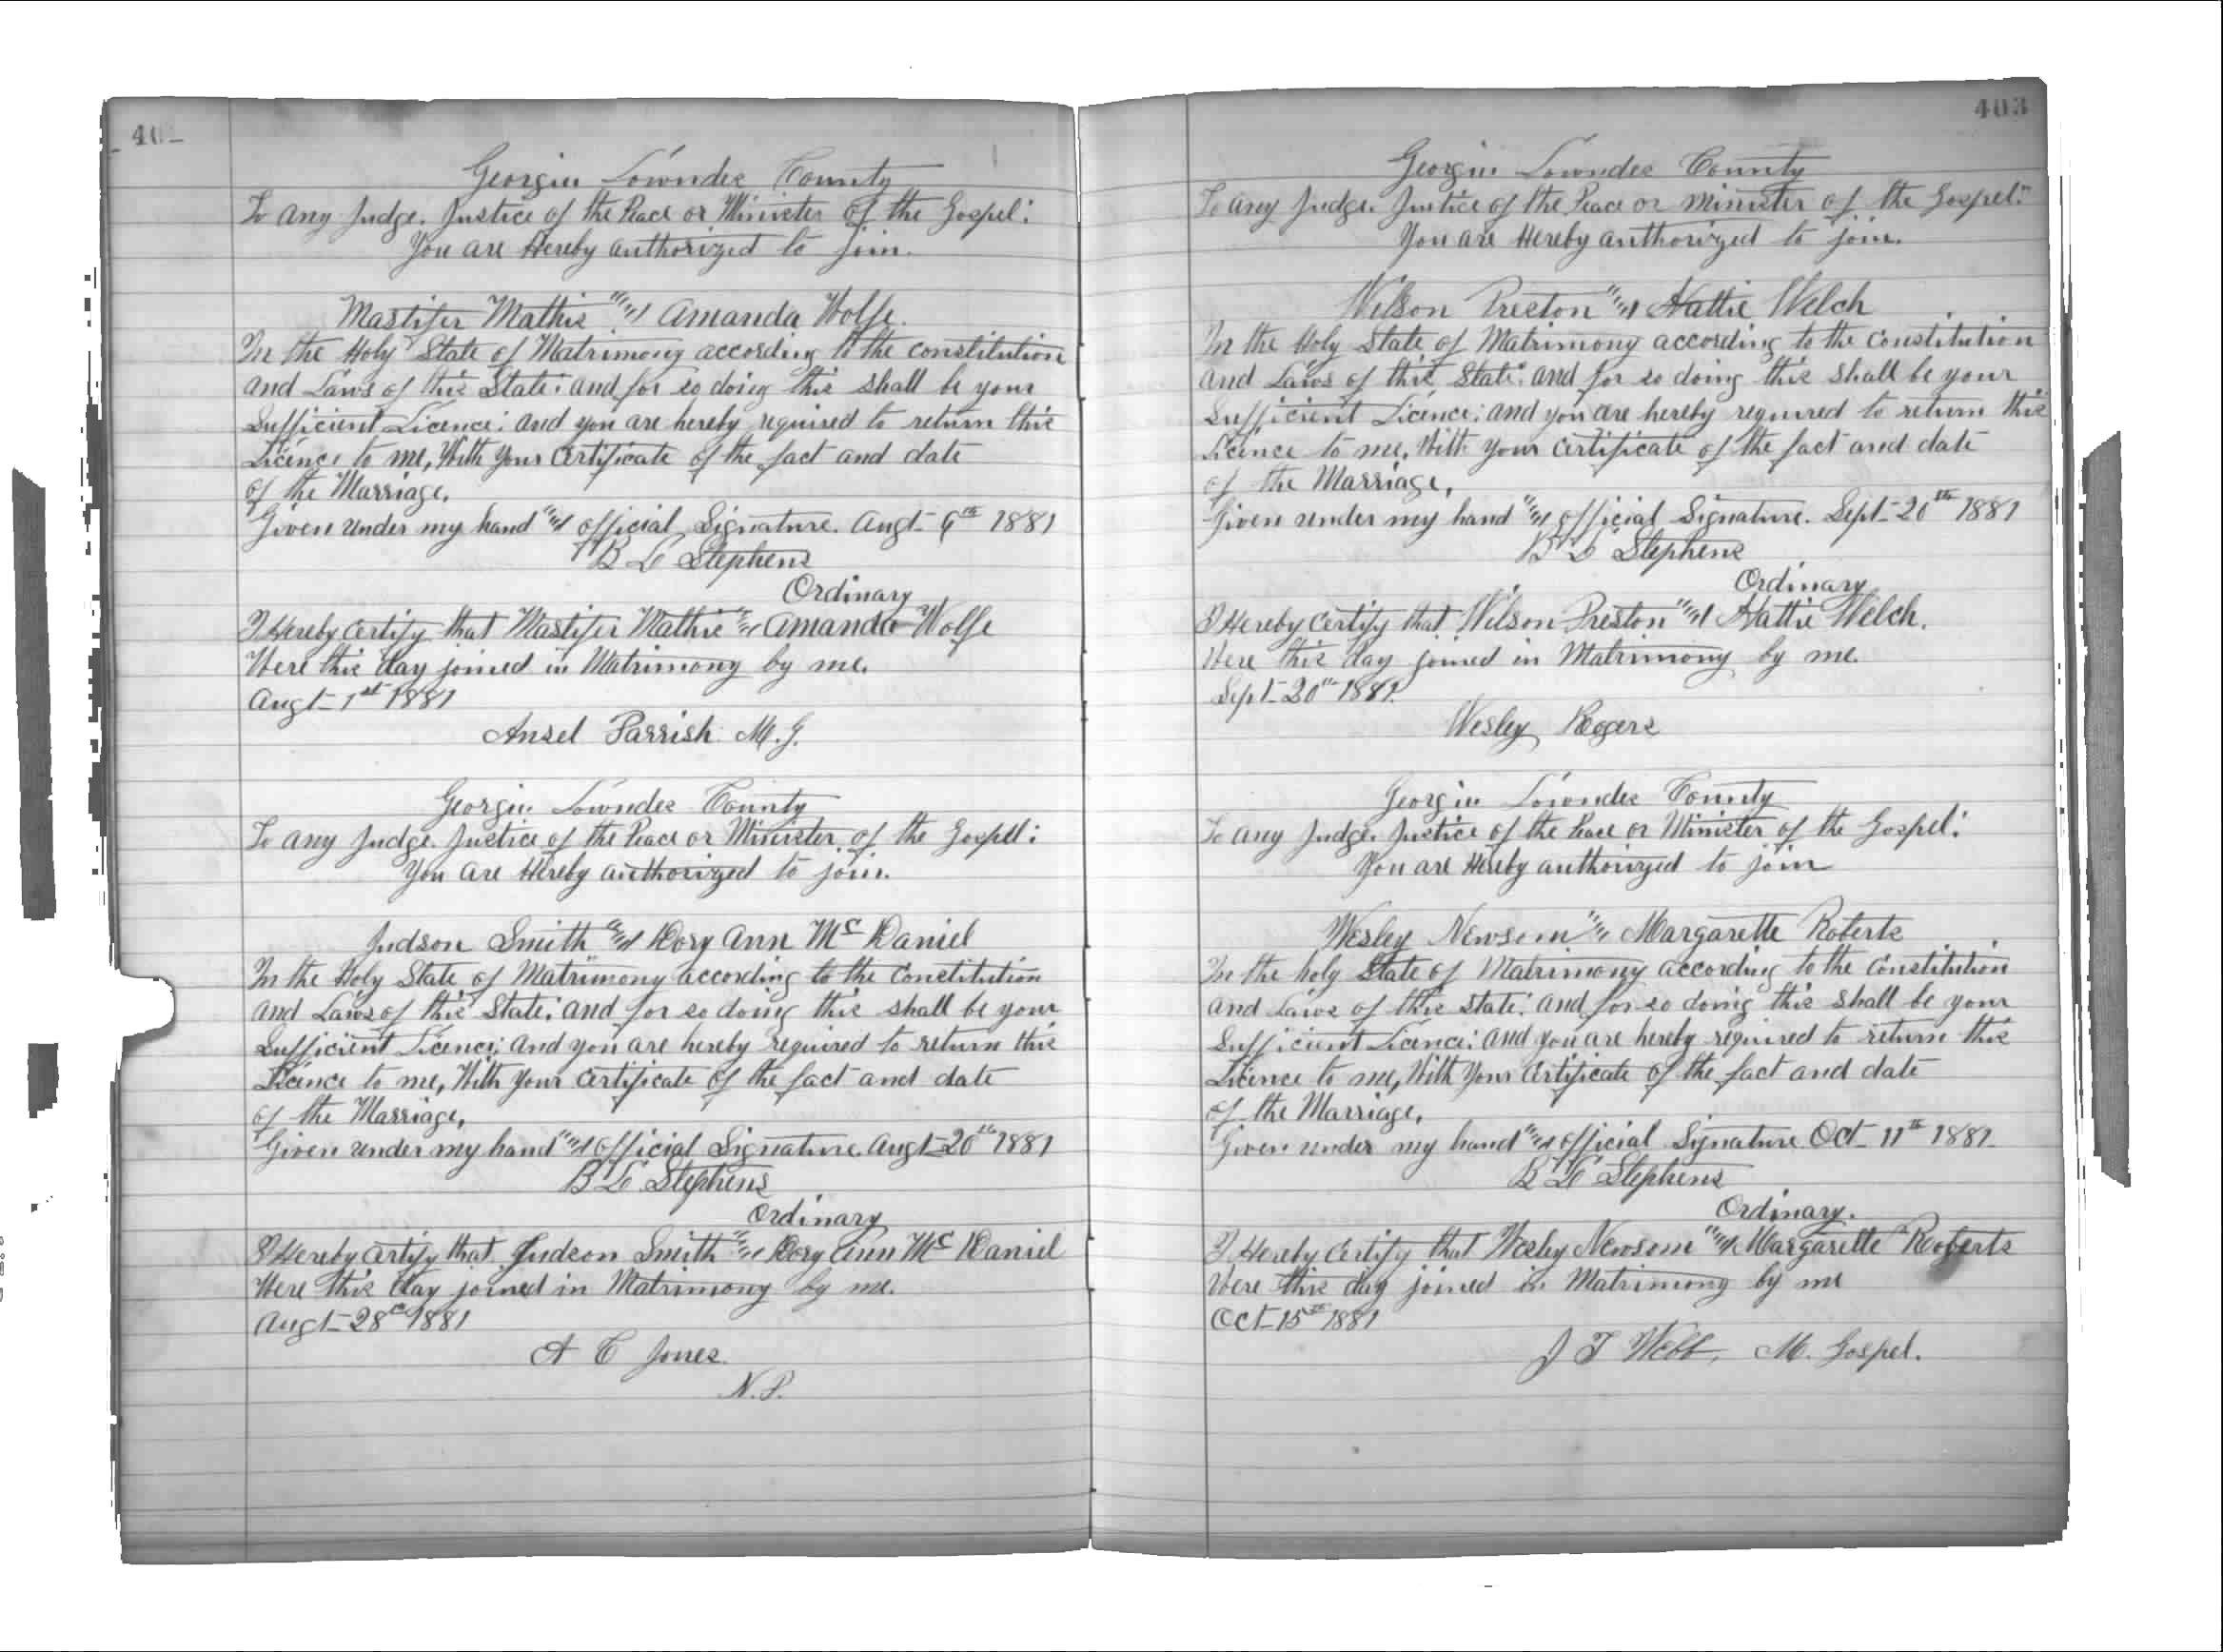 40
Georgia Lowndes County
To any Judge. Justice of the Peace or Minister of the Gospel:
You are Hereby authorized to join.
Mastifer Mathis and Amanda Wolfe.
In the Holy State of Matrimony according to the constitution
and Laws of this State: and for so doing this shall be your
Sufficient Licence: and you are hereby required to return this
Licence to me, With Your Certificate of the fact and date
of the Marriage,
Given under my hand and official Signature. Augt 6th 1881
B L Stephens
Ordinary
I Hereby certify that Mastifer Mathis and Amanda Wolfe
Were this day joined in Matrimony by me.
Augt 1st 1881
Ansel Parrish M. G.
Georgia Lowndes County
To any Judge. Justice of the Peace or Minister of the Gospel:
You are Hereby authorized to join.
Judson Smith and Dory Ann Mc Daniel
In the Holy State of Matrimony according to the Constitution
and Laws of this State: and for so doing this shall be your
Sufficient Licence: and you are hereby required to return this
Licence to me, With Your Certificate of the fact and date
of the Marriage,
Given under my hand and official Signature. Augt 20th 1881
B L Stephens
Ordinary
I Hereby certify that Judson Smith and Dory Ann Mc Daniel
Were this day joined in Matrimony by me.
Augt 28th 1881
A C Jones
N. P.
403
Georgia Lowndes County
To any Judge. Justice of the Peace or Minister of the Gospel:
You are Hereby authorized to join.
Wilson Preston and Hattie Welch
In the Holy State of Matrimony according to the Constitution
and Laws of this State: and for so doing this shall be your
Sufficient Licence: and you are hereby required to return this
Licence to me, With your Certificate of the fact and date
of the Marriage,
Given under my hand and official Signature. Sept 20th 1881
B L Stephens
Ordinary
I Hereby Certify that Wilson Preston and Hattie Welch.
Were this day joined in Matrimony by me.
Sept 20th 1881.
Wesley Rogers
Georgia Lowndes County
To any Judge. Justice of the Peace or Minister of the Gospel:
You are Hereby authorized to join
Wesley Newsom and Margarette Roberts
In the holy State of Matrimony according to the Constitution
and Laws of this State: and for so doing this shall be your
Sufficient Licence: and you are hereby required to return this
Licence to me, With Your Certificate of the fact and date
of the Marriage,
Given under my hand and official Signature Oct 11th 1881
B L Stephens
Ordinary.
I Hereby Certify that Wesley Newsom and Margarette Roberts
Were this day joined in Matrimony by me
Oct 15th 1881
J T Webb, M. Gospel.